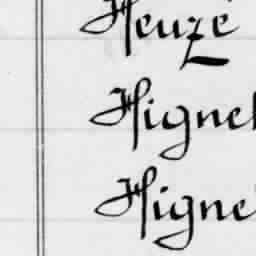 Heuzé
Hignel
Higne